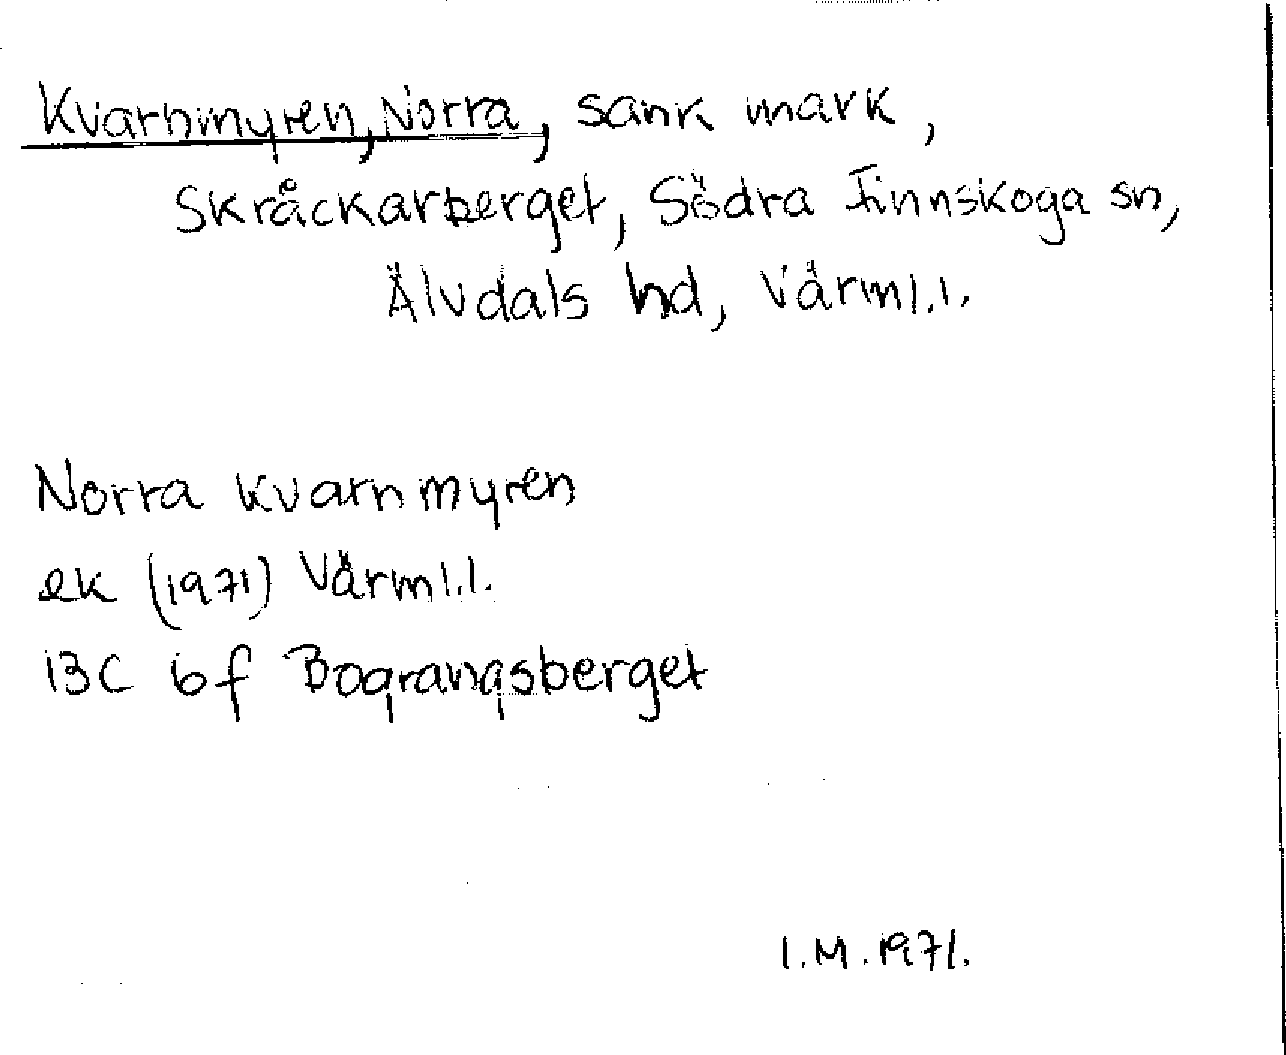 Kvarnmyren, Norra, sank mark,
Skråckarberget, Södra Finnskoga sn,
Älvdals hd, Värml.l.
Norra Kvarnmyren
ek (1971) Värml.l.
13C 6f Bograngsberget
I.M. 1971.